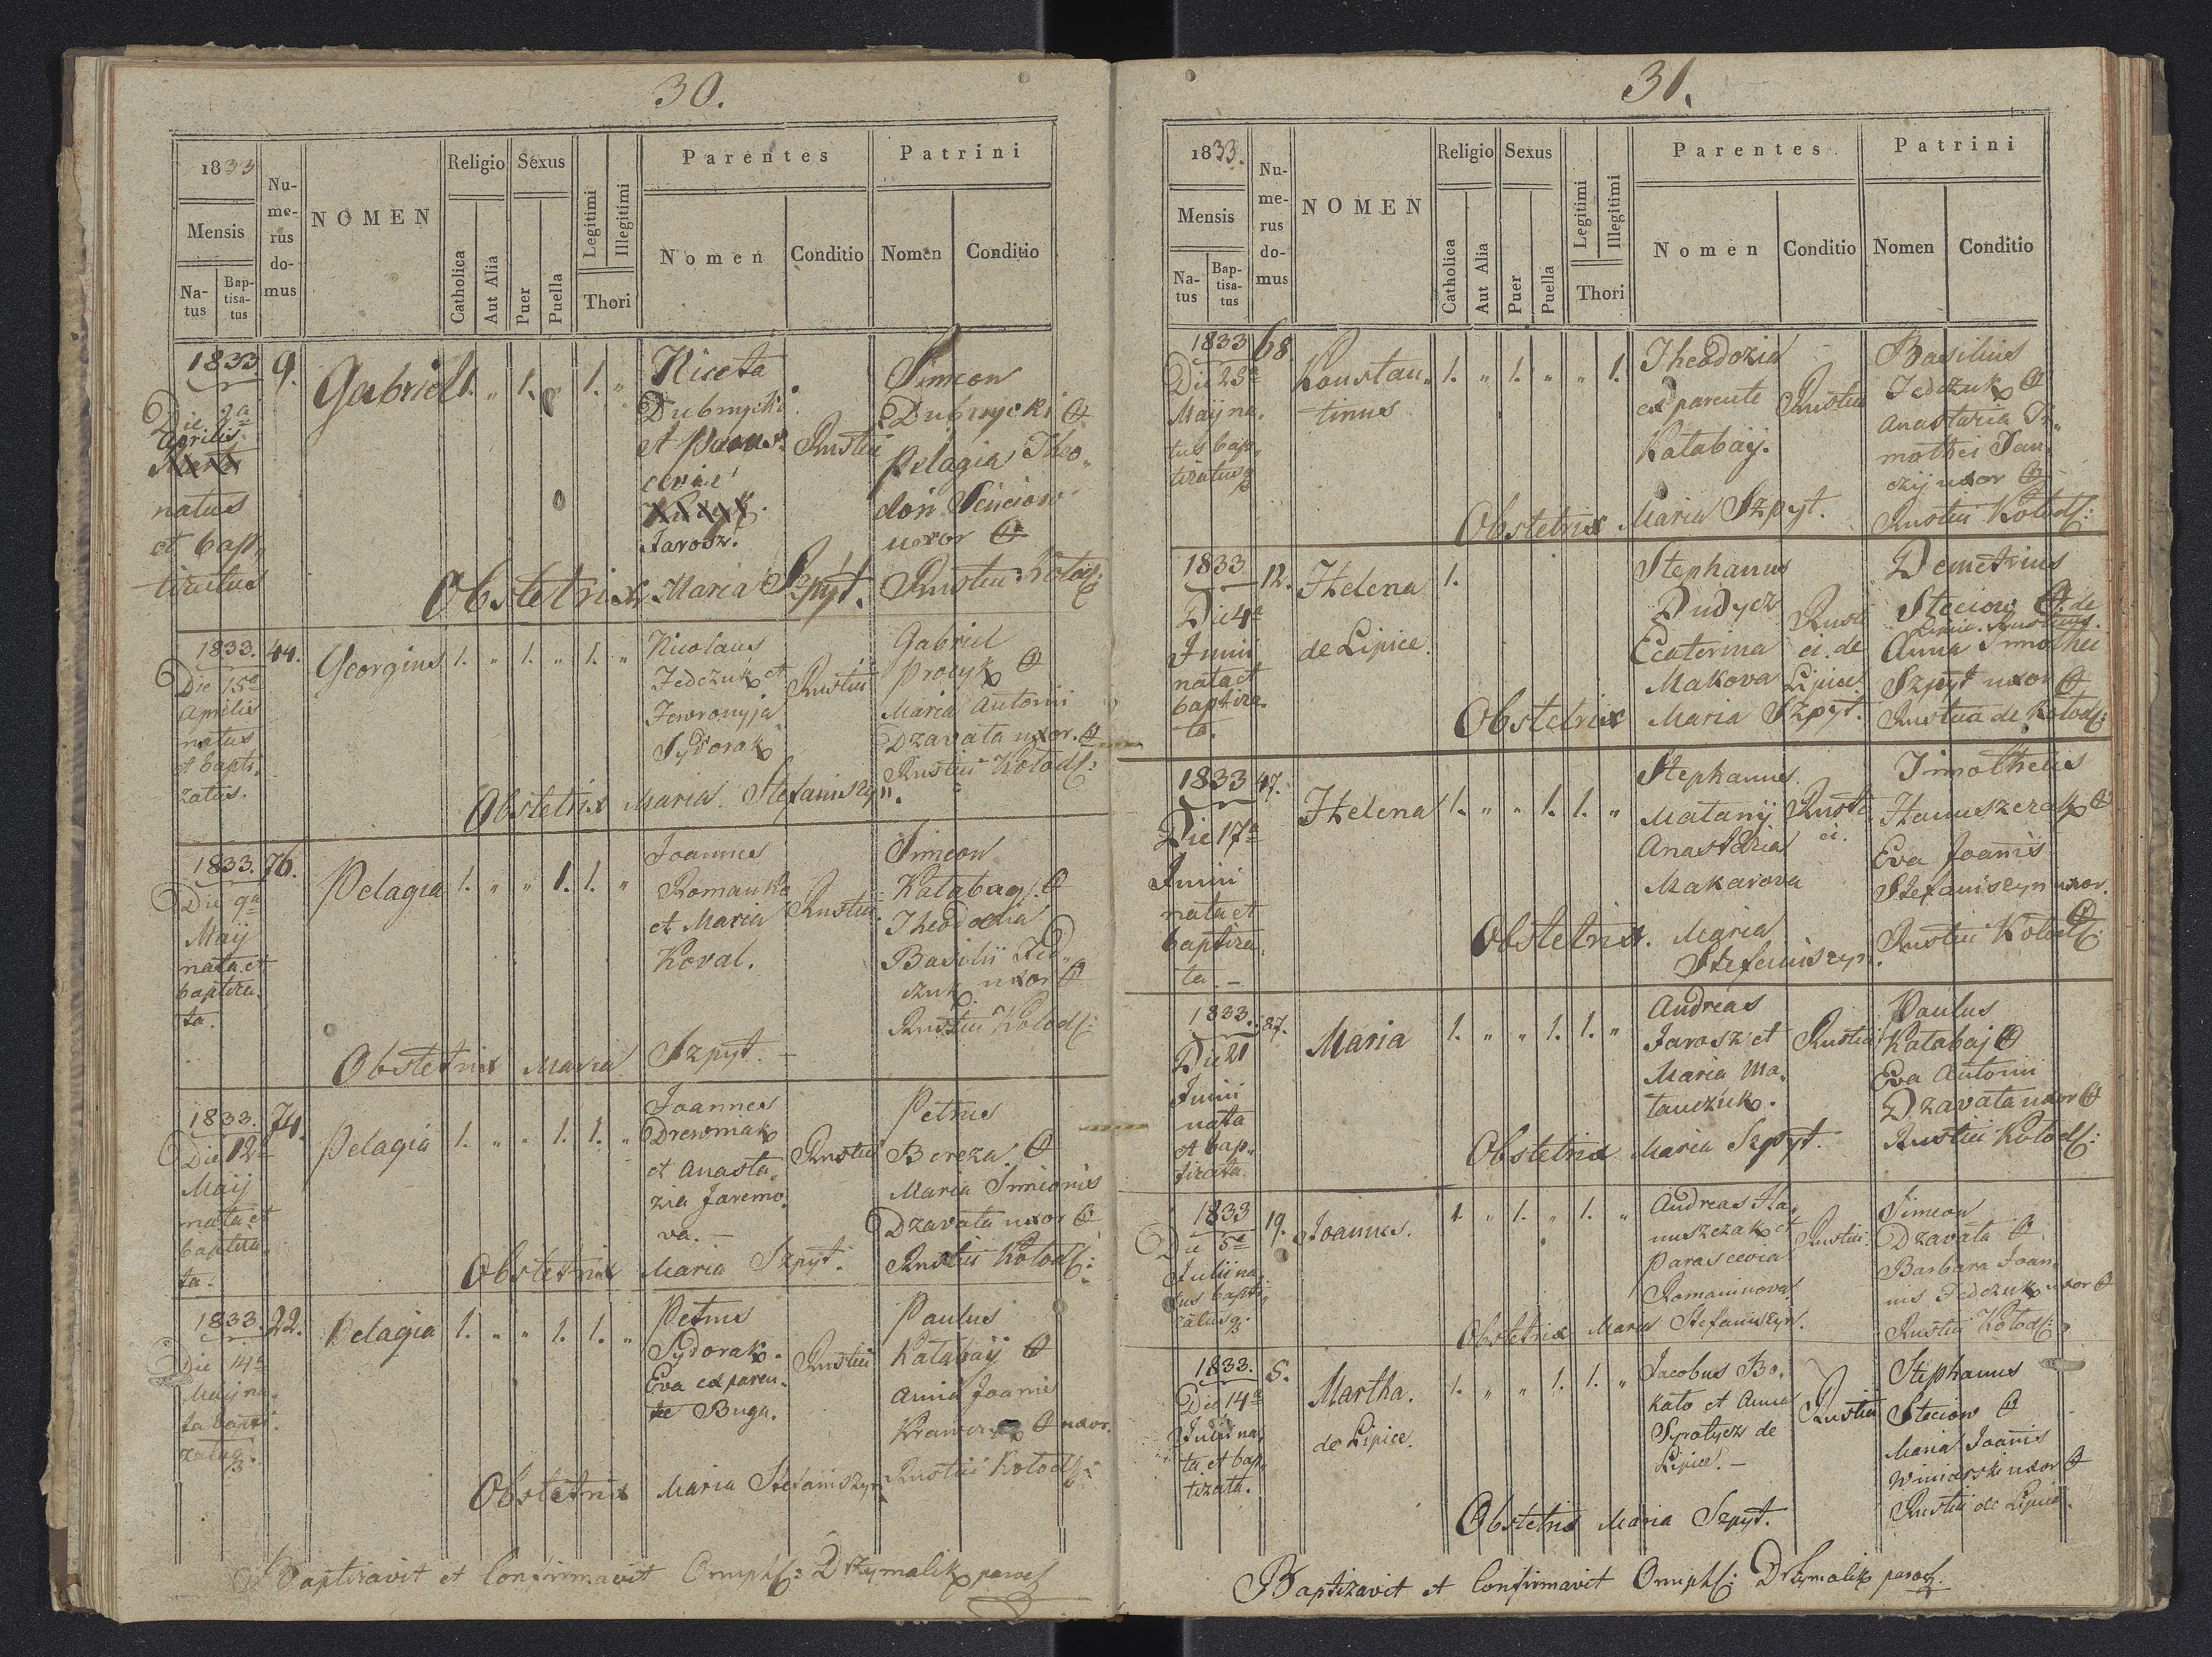 30.
1833
Mensis
Na-
tus
Bap-
tisa-
tus
Nu-
me-
rus
do-
mus
NOMEN
Religio
Catholica
Aut Alia
Sexus
Puer
Puella
Legitimi
Illegitimi
Thori
Parentes
Nomen
Conditio
Patrini
Nomen
Conditio
1833
Die 2a
Aprilis
natus
et bap„
tizatus
9.
Gabriel
1. „ 1. 1. „
Niceta
Dubnycki
et Paras
cevia
Jarosz.
Rustici
Simeon
Dubnycki
Pelagia Theo„
dori Seńciow
uxor
Rustici Kołod:
Obstetrix Maria Szpyt.
1833.
Die 15a
Aprilis
natus
et bapti„
zatus.
44.
Georgius
1. „ 1. „ 1. „
Nicolaus
Fedczuk et
Jewronyja
Sydorak
Rustici
Gabriel
Procyk
Maria Antonii
Dzavata uxor.
Rustici Kołod:
Obstetrix Maria Stefaniszyn.
1833.
Die 9a
Maij
nata et
baptiza„
ta.
76.
Pelagia
1. „ „ 1. 1. „
Joannes
Romanko
et Maria
Koval.
Rustici
Simeon
Katabay.
Theodozia
Basilii Fed„
czuk uxor
Rustici Kołod:
Obstetrix Maria Szpyt. –
1833.
Die 12a
Maij
nata et
baptiza„
ta.
74.
Pelagia
1. „ „ 1. 1. „
Joannes
Drewniak
et Anasta„
zia Jaremo„
va. –
Rustici
Petrus
Bereza.
Maria Simionis
Dzavata uxor
Rustici Kołod:
Obstetrix Maria Szpyt.
1833.
Die 14a
Maij na„
ta bapti„
zataq.
22.
Pelagia
1. „ „ 1. 1. „
Petrus
Sydorak.
Eva ex paren„
te Buga.
Rustici
Paulus
Katabaij
Anna Joannis
uxor.
Rustici Kołod:
Obstetrix Maria Stefaniszyn
Baptizavit et Confirmavit Onuph: Drzymalik paroch
31.
1833.
Mensis
Na-
tus
Bap-
tisa-
tus
Nu-
me-
rus
do-
mus
NOMEN
Religio
Catholica
Aut Alia
Sexus
Puer
Puella
Legitimi
Illegitimi
Thori
Parentes
Nomen
Conditio
Patrini
Nomen
Conditio
1833
Die 23a
Maij na„
tus bap„
tizatusq
68.
Konstan„
tinus
1. „ 1. „ „ 1.
Theodozia
ex parente
Katabaij.
Rustici
Basilius
Fedczuk
Anastazia Ti„
mothei Sen„
czij uxor
Rustici Kołod:
Obstetrix Maria Szpyt.
1833
Die 4a
Junii
nata et
baptiza„
ta.
12.
Helena
de Lipice.
1.
Stephanus
Dudycz
Ecaterina
Makova
Rusti
ci. de
Lipice
Demetrius
Steciow de
Lipic. Rusticus.
Anna Timothei
Szpyt uxor
Rustica de Kołod:
Obstetrix Maria Szpyt.
1833
Die 17a
Junii
nata et
baptiza„
ta. –
47.
Helena
1. „ „ 1. 1. „
Stephanus
Matanij
Anastazia
Makarova
Rusti
ci.
Timotheus
Hanuszczak
Eva Joanis
Stefaniszyn uxor.
Rustici Kołod:
Obstetrix. Maria
Stefaniszyn.
1833.
Die 21
Junii
nata
et bap„
tizata
87.
Maria
1. „ „ 1. 1. „
Andreas
Jarosz et
Maria Ma„
tauczuk.
Rustici
Paulus
Katabaj
Eva Antonii
Dzavata uxor
Rustici Kołod:
Obstetrix Maria Szpyt.
1833
Die 5a
Julii na„
tus bapti„
zatusq.
19.
Joannes.
1. „ 1. „ 1. „
Andreas Ha„
nuszczak et
Parascevia
Romaninova
Rustici.
Simeon
Dzavata
Barbara Joan„
nis Fedczuk uxor
Rustici Kołod:
Obstetrix Maria Stefaniszyn.
1833.
Die 14a
Julii na„
ta et bap„
tizata.
5.
Martha.
de Lipice.
1. „ „ 1. 1. „
Jacobus Bo„
kato et Anna
Syrotycz de
Lipice. –
Rustici
Stephanus
Steciow
Maria Joanis
Winiarski uxor
Rustici de Lipice.
Obstetrix Maria Szpyt.
Baptizavit et Confirmavit Onuph: Drzymalik paroch.